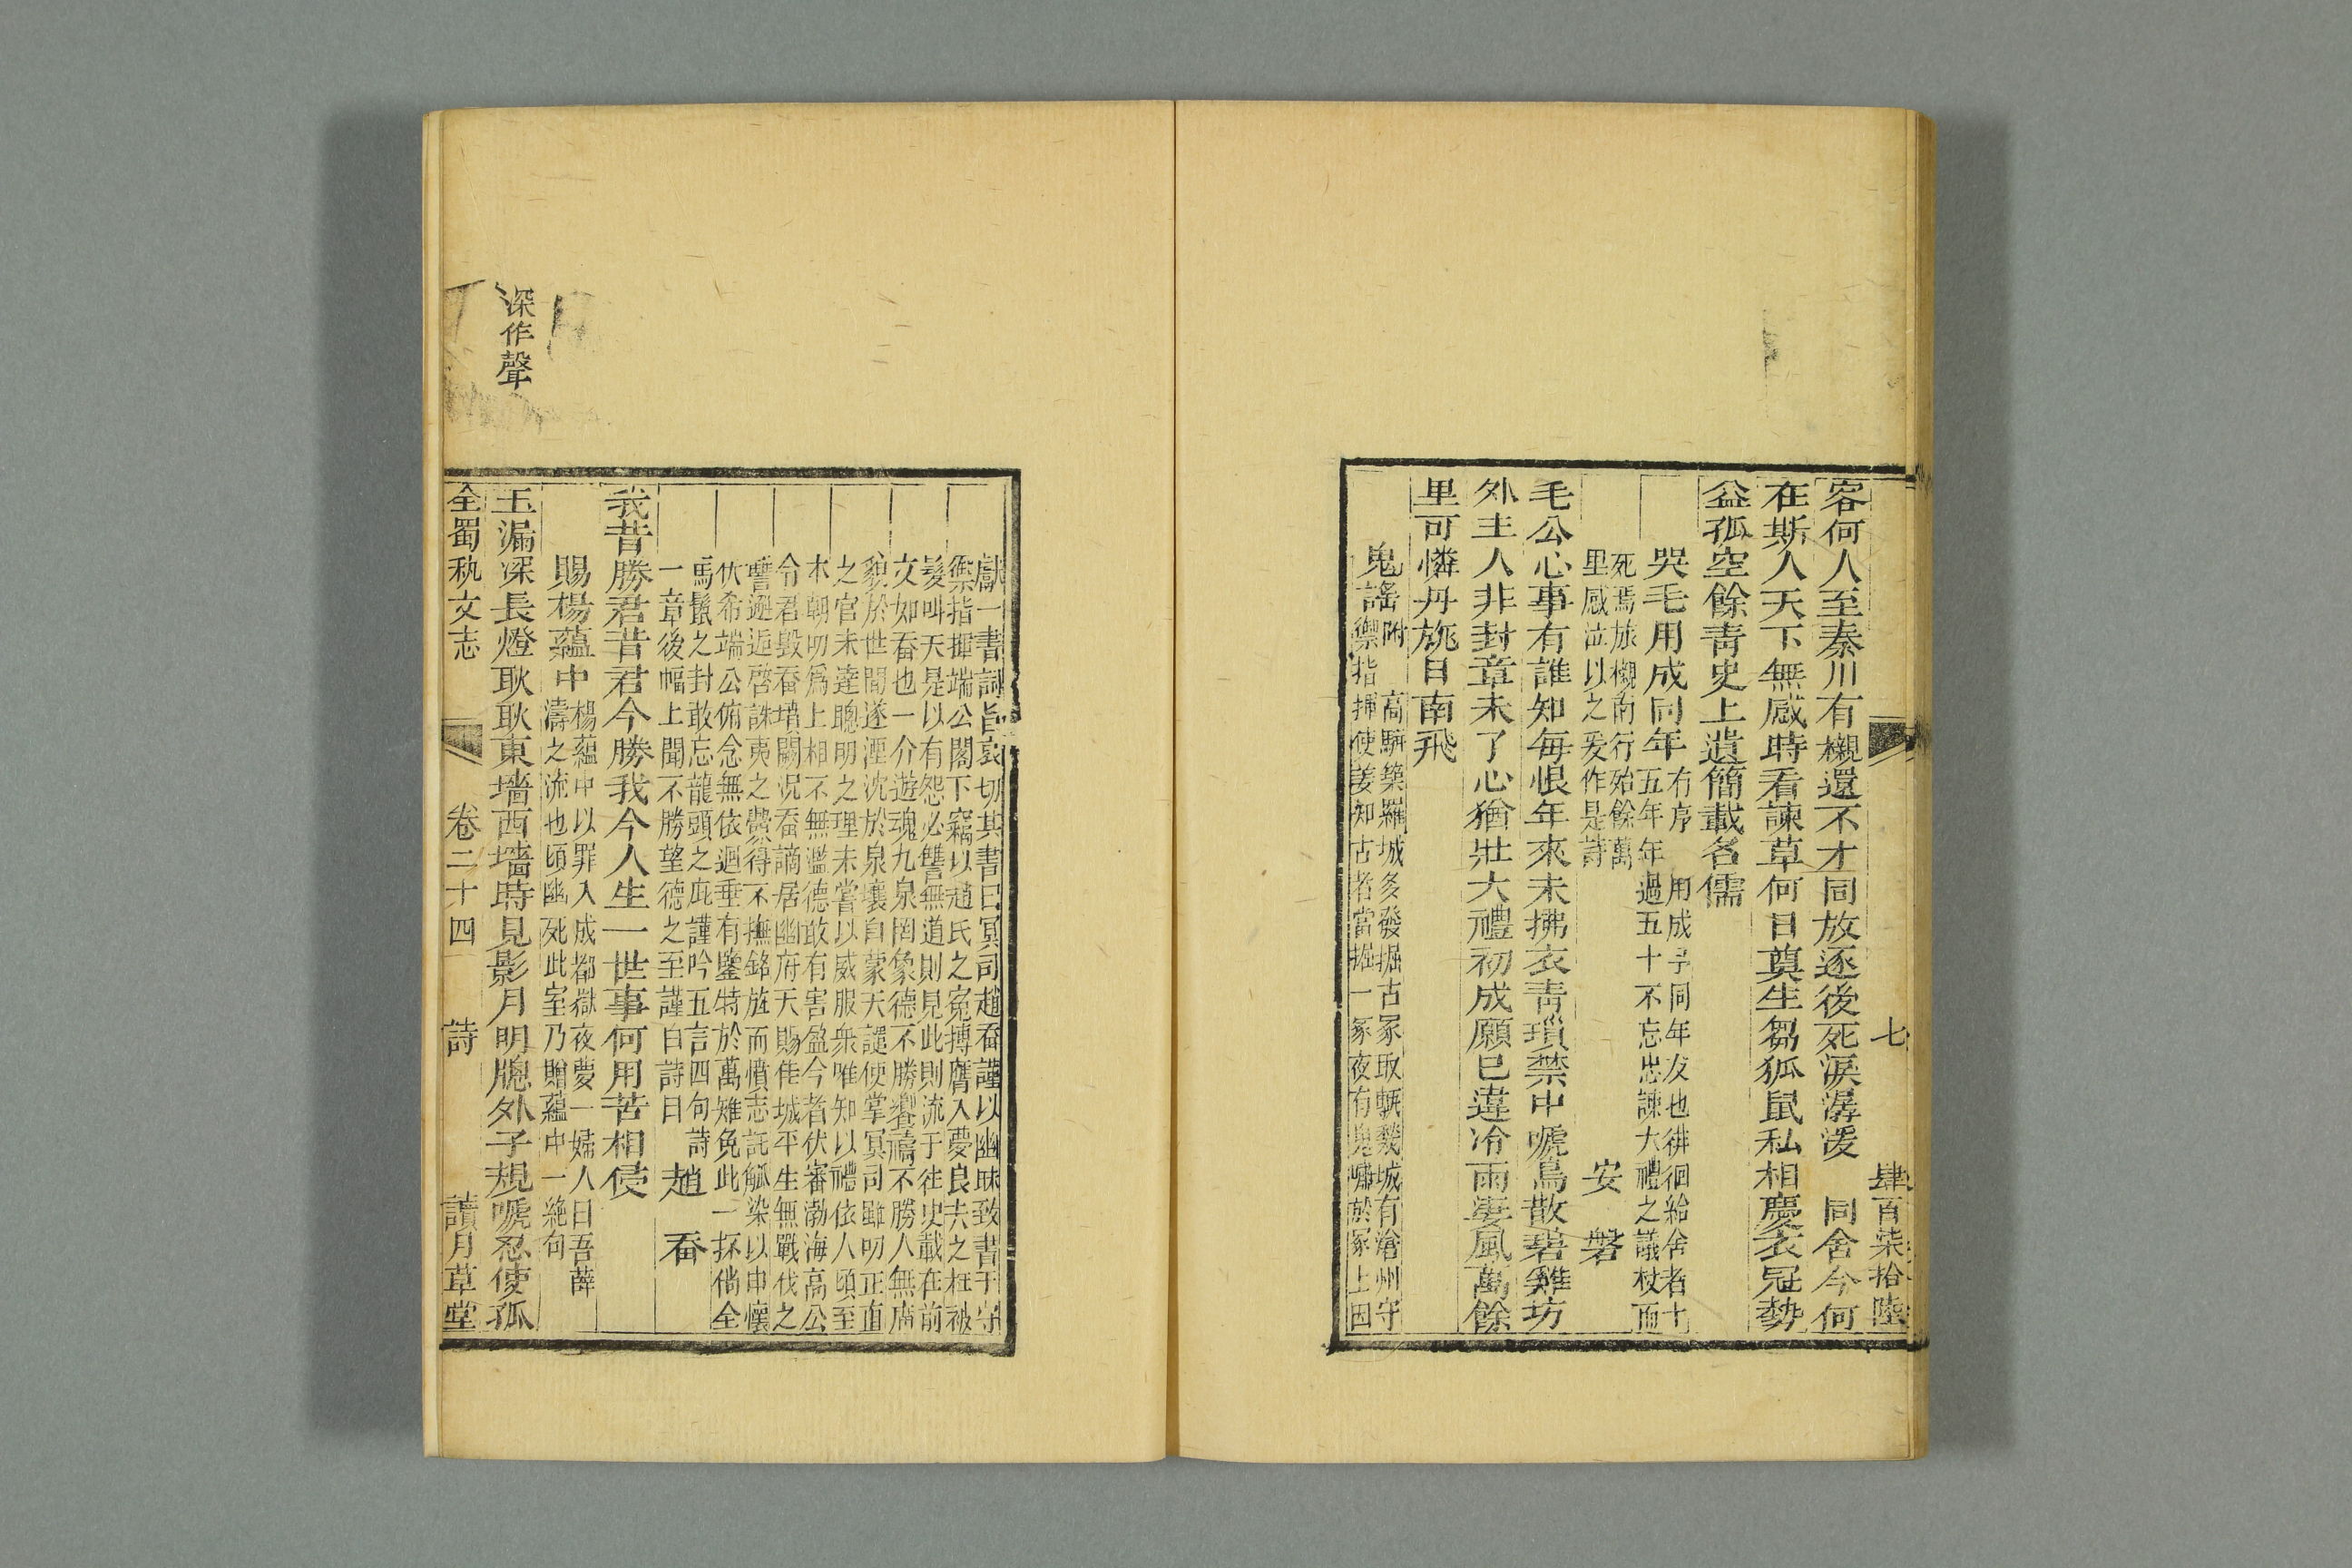 七 肆百柒拾陸
客何人至秦川有櫬還不才同放逐後死淚潺湲 同舍今何
在斯人天下無感時看諫草何日奠生芻狐鼠私相慶衣冠勢
益孤空餘青史上遺簡載名儒
哭毛用成同年 有序 用成予同年友也徘徊給舍者十
五年年過五十不忘忠諫大禮之議杖而
死焉旅櫬南行殆餘萬
里感泣以之爰作是詩 安磐
毛公心事有誰知每恨年來未拂衣青瑣禁中嗁鳥散碧雞坊
外主人非封章未了心猶壯大禮初成願已違冷雨淒風萬餘
里可憐丹旐日南飛
鬼謠附 高駢築羅城多發掘古冢取甎甃城有滄州守
禦指揮使姜知古者當掘一冢夜有鬼嘯於冢上因
獻一書詞旨哀切其書曰冥司趙畚謹以幽昧致書于守
禦指揮端公閣下竊以趙氏之冤搏膺入夢良夫之枉被
髮叫天是以有怨必讐無道則見此則流于往史載在前
文如畚也一介遊魂九泉罔象德不勝饗禱不勝人無席
貌於世間遂湮沈於泉壤自蒙天譴使掌冥司雖叨正直
之官未達聰明之理未嘗以威服衆唯知以禮依人頃至
本朝叨爲上相不無濫德敢有害盈今者伏審渤海高公
令君毀畚墳闕況畚謫居幽府天賜佳城平生無戰伐之
讐邂逅啓誅夷之釁得不撫銘旌而憤志託觚染以申懷
伏希端公俯念無依迴垂有鑒特於萬雉免此一抔倘全
馬鬛之封敢忘龍頭之庇謹吟五言四句詩
一章後幅上聞不勝望德之至謹白詩曰 趙畚
我昔勝君昔君今勝我今人生一世事何用苦相侵
賜楊蘊中 楊蘊中以罪入成都獄夜夢一婦人曰吾薛
濤之流也頃幽死此室乃贈蘊中一絶句
深作聲
玉漏深長燈耿耿東墻西墻時見影月明牕外子規嗁忍使孤
全蜀秇文志 卷二十四 詩 讀月草堂